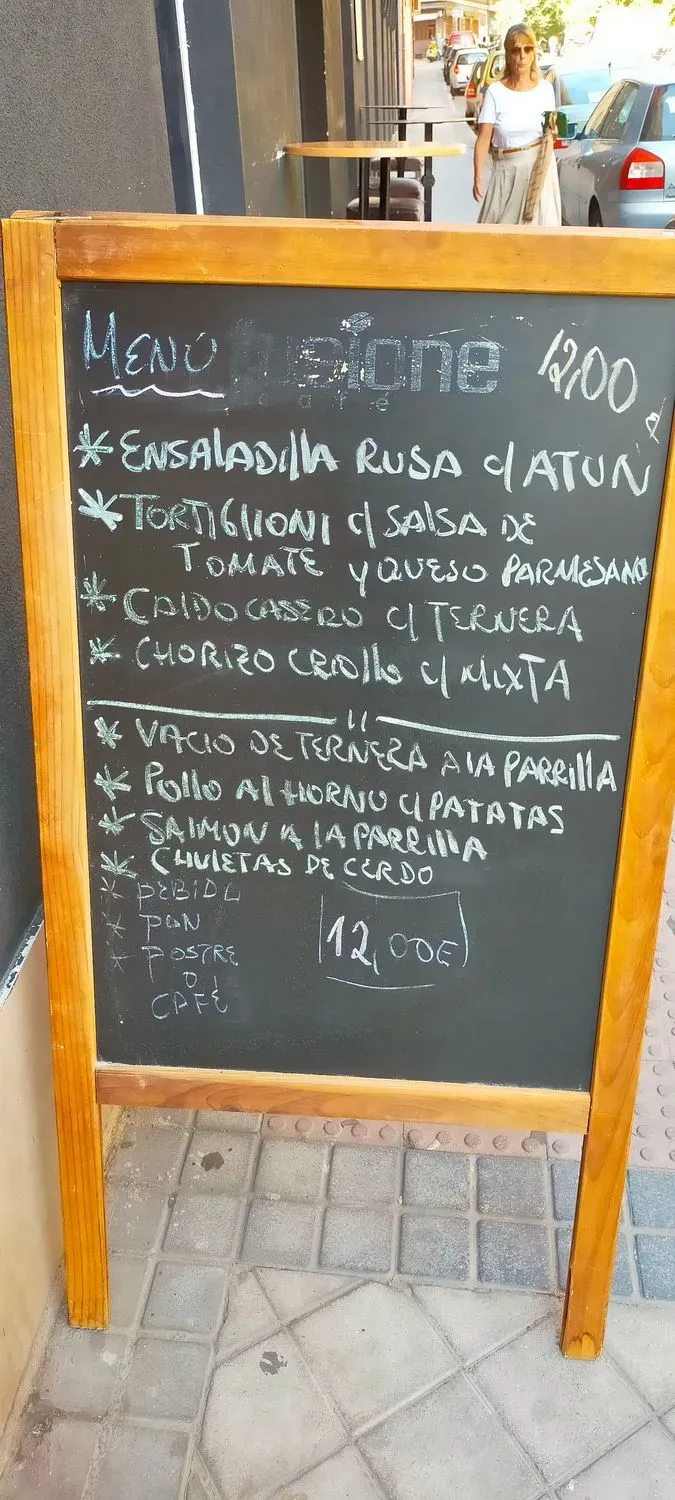 MENÚ fusione 12,00
café
* ENSALADILLA RUSA c/ ATUN
* TORTIGLIONI c/ SALSA DE
TOMATE y QUESO PARMESANO
* CALDO CASERO c/ TERNERA
* CHORIZO CRIOLLO c/ MIXTA
* VACIO DE TERNERA A LA PARRILLA
* POLLO AL HORNO c/ PATATAS
* SALMON A LA PARRILLA
* CHULETAS DE CERDO
* BEBIDA
* PAN
* POSTRE 12,00€
O
CAFE